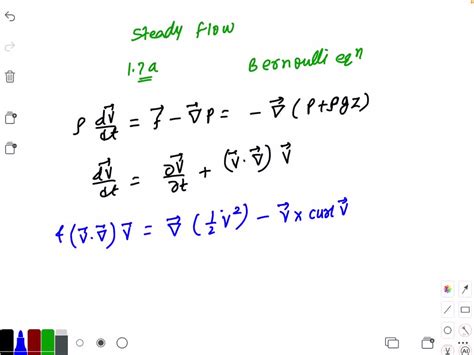 steady flow
1.7a Bernoulli eqⁿ
ρ dv⃗/dt = f⃗ - ∇⃗P = - ∇⃗ (P+ρgz)
dv⃗/dt = ∂v⃗/∂t + (v⃗.∇⃗) v⃗
f (v⃗.∇⃗) v⃗ = ∇⃗ (1/2 v²) - v⃗ x curl v⃗